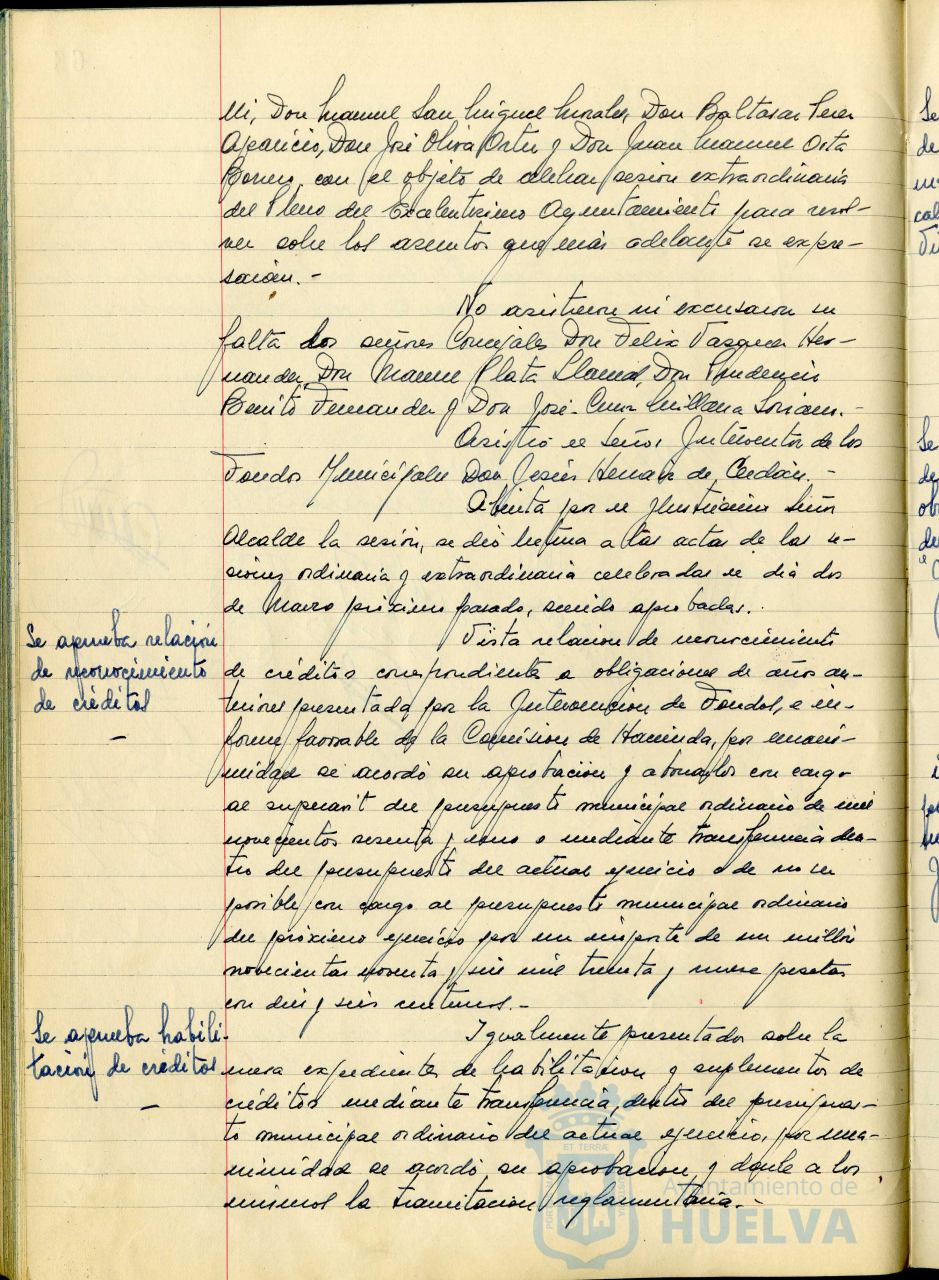 Mi, Don Manuel San Miguel Morales, Don Baltasar Perez
Aparicio, Don José Oliva Ortiz y Don Juan Manuel Orta
con el objeto de celebrar sesion extraordinaria
del Pleno del Excelentisimo Ayuntamiento para resol-
ver sobre los asuntos que más adelante se expre-
sarán.-
No asistieron ni excusaron su
falta los señores Concejales Don Felix Vazquez Her-
nandez, Don Manuel Plata Don Prudencio
Benito Fernandez y Don José Millana Soriano.-
Asistió el Señor Interventor de los
Fondos Municipales Don Jesús Henares de Cerdán.-
Abierta por el Ilustrisimo Señor
Alcalde la sesión, se dió lectura a las actas de las se-
siones ordinaria y extraordinaria celebradas el dia dos
de Marzo próximo pasado, siendo aprobadas.
Se aprueba relación
de reconocimiento
de créditos
-
Vista relacion de reconocimiento
de créditos correspondiente a obligaciones de años an-
teriores presentada por la Intervencion de Fondos, e in-
forme favorable de la Comision de Hacienda, por unani-
midad se acordó su aprobacion y abonarlos con cargo
al superavit del presupuesto municipal ordinario de mil
novecientos sesenta y uno o mediante transferencia den-
tro del presupuesto del actual ejercicio o de no ser
posible con cargo al presupuesto municipal ordinario
del próximo ejercicio por un importe de un millón
novecientas noventa y seis mil treinta y nueve pesetas
con diez y seis centimos.-
Se aprueba habili-
tación de créditos
-
Igualmente presentados sobre la
mesa expedientes de habilitacion y suplementos de
créditos mediante transferencia, dentro del presupues-
to municipal ordinario del actual ejercicio, por una-
nimidad se acordó su aprobacion y darle a los
mismos la tramitacion reglamentaria.-
Ayuntamiento de
HUELVA